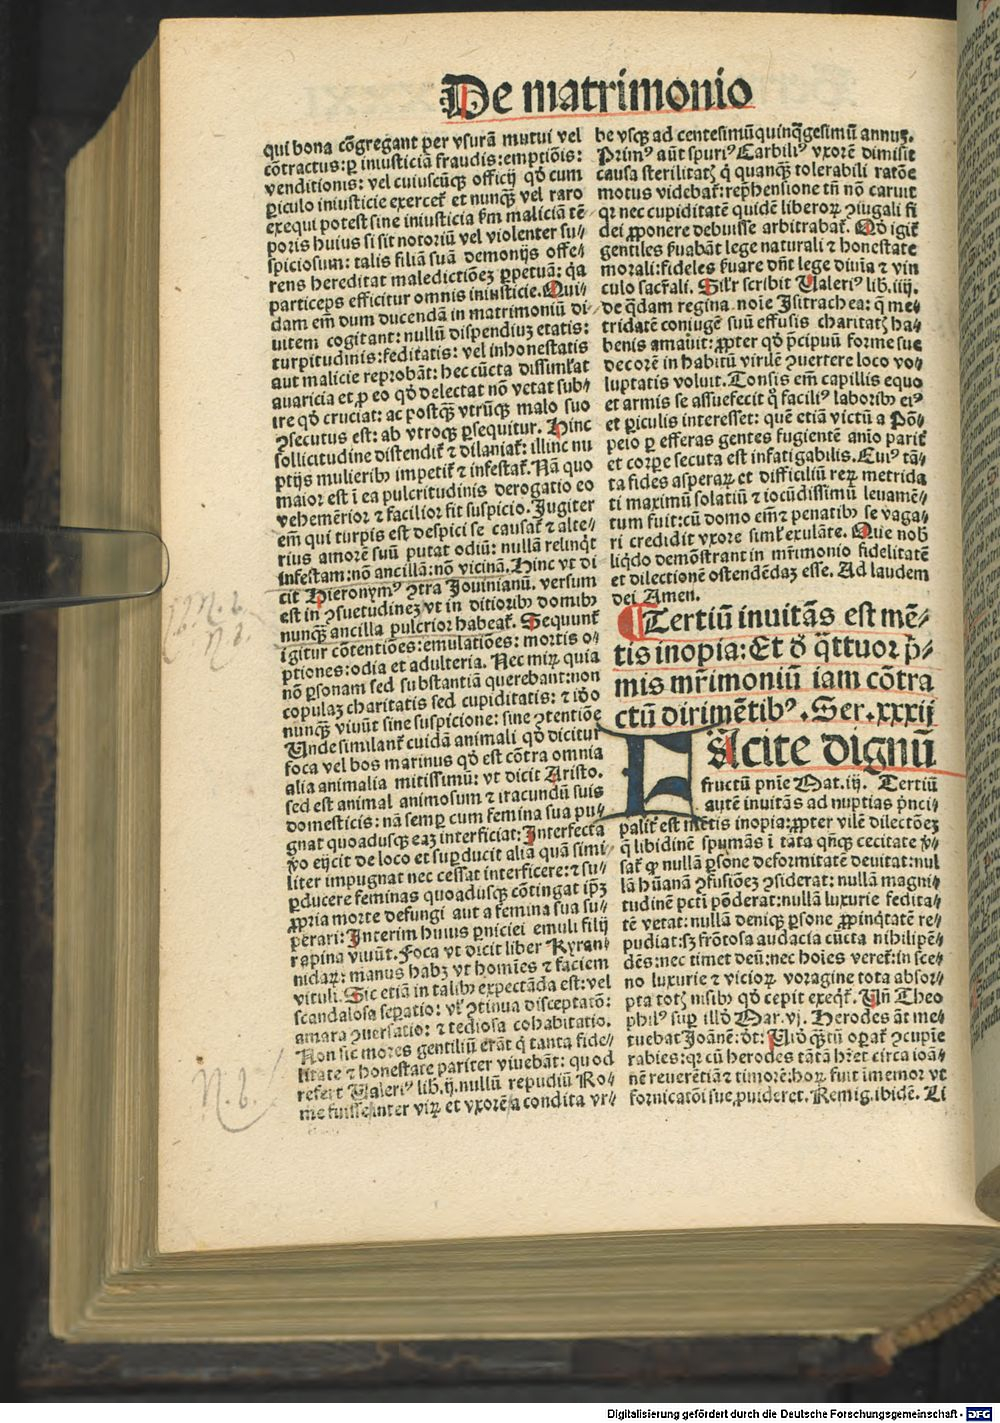 De matrimonio
qui bona cõgregant ꝑ vsurã mutui vel
cõtractus: ꝑ iniusticiã fraudis: emptiõis:
venditionis: vel cuiuscũqꝫ officij qđ cum
ꝑiculo iniusticie exercet᷑ et nunqꝫ vel raro
exequi potest sine iniusticia ẜm maliciã tẽ-
poris huius si sit notoriũ vel violenter su-
spiciosum: talis filiã suã demonijs offe-
rens hereditat maledictiõeꝫ ꝑpetuã: q̃a
particeps efficitur omnis iniusticie. Qui-
dam em̃ dum ducendã in matrimoniũ di-
uitem cogitant: nullũ dispendiuꝫ etatis:
turpitudinis: feditatis: vel inhonestatis
aut malicie reprobãt: hec cũcta dissiml̃at
auaricia et ꝓ eo qđ delectat nõ vetat sub-
ire qđ cruciat: ac postqꝫ vtrũqꝫ malo suo
ↄsecutus est: ab vtroqꝫ ꝑsequitur. Hinc
sollicitudine distendit᷑ ⁊ dilaniat᷑: illinc nu
ptijs mulieribꝰ impetit᷑ ⁊ infestat᷑. Nã quo
maior est ĩ ea pulcritudinis derogatio eo
vehemẽtior ⁊ facilior fit suspicio. Jugiter
em̃ qui turpis est despici se causat᷑ ⁊ alte-
rius amorẽ suũ putat odiũ: nullã relinq̃t
infestam: nõ ancillã: nõ vicinã. Hinc vt di
cit Hieronymꝰ ↄtra Jouinianũ. versum
est in ↄsuetudineꝫ vt in ditioribꝰ domibꝰ
nunqꝫ ancilla pulcrior habeat᷑. Sequunt᷑
igitur cõtentiões: emulatiões: mortis o-
ptiones: odia et adulteria. Nec miꝝ quia
nõ ꝑsonam sed substantiã querebant: non
copulaꝫ charitatis sed cupiditatis: ⁊ iđo
nunqꝫ viuũt sine suspicione: sine ↄtentiõe
Unde similant᷑ cuidã animali qđ dicitur
foca vel bos marinus qđ est cõtra omnia
alia animalia mitissimũ: vt dicit Aristo.
sed est animal animosum ⁊ iracundũ suis
domesticis: nã semꝑ cum femina sua pu-
gnat quoadusqꝫ eaꝫ interficiat: Interfecta
ṽo eijcit de loco et suꝑducit aliã quã simi-
liter impugnat nec cessat interficere: ⁊ su-
ꝑducere feminas quoadusqꝫ cõtingat ip̃ꝫ
ꝓpria morte defungi aut a femina sua su-
perari: Interim huius ꝑniciei emuli filij
rapina viuũt. Foca vt dicit liber Kyran-
nidaꝝ: manus habꝫ vt homĩes ⁊ faciem
vituli. Sic etiã in talibꝰ expectãda est: vel
scandalosa seꝑatio: vl̃ ↄtinua disceptatõ:
amara ↄuersatio: ⁊ tediosa cohabitatio.
Non sic mores gentiliũ erãt q̃ tanta fide-
litate ⁊ honestate pariter viuebãt: quod
refert Ualeriꝰ lib. ij. nullũ repudiũ Ro-
me fuisse inter viꝝ et vxorẽ a condita vr-
be vsqꝫ ad centesimũquinq̃gesimũ annuꝫ.
Primꝰ aũt spuriꝰ Carbiliꝰ vxorẽ dimisit
causa sterilitatꝭ q̃ quanqꝫ tolerabili ratõe
motus videbat᷑: rep̃hensione tñ nõ caruit
qꝛ nec cupiditatẽ quidẽ liberoꝝ ↄiugali fi
dei ꝓponere debuisse arbitrabat᷑. Qđ igit᷑
gentiles ẜuabãt lege naturali ⁊ honestate
morali: fideles ẜuare dñt lege diuĩa ⁊ vin
culo sacr̃ali. Sil̃r scribit Ualeriꝰ lib. iiij.
de q̃dam regina noĩe Jsitrachea: q̃ me-
tridatẽ coniugẽ suũ effusis charitatꝭ ha-
benis amauit: ꝓpter qđ p̃cipuũ forme sue
decorẽ in habitũ virilẽ ↄuertere loco vo-
luptatis voluit. Tonsis em̃ capillis equo
et armis se assuefecit q̃ faciliꝰ laboribꝰ eiꝰ
et ꝑiculis interesset: quẽ etiã victũ a Põ-
peio ꝑ efferas gentes fugientẽ anĩo parit᷑
et corꝑe secuta est infatigabilis. Cuiꝰ tã-
ta fides asperaꝝ et difficiliũ reꝝ metrida
ti maximũ solatiũ ⁊ iocũdissimũ leuamẽ-
tum fuit: cũ domo em̃ ⁊ penatibꝰ se vaga-
ri credidit vxore siml̃ exulãte. Que nob̃
liq̃do demõstrant in mr̃imonio fidelitatẽ
et dilectionẽ ostendẽdaꝫ esse. Ad laudem
dei Amen.
Tertiũ inuitãs est mẽ-
tis inopia: Et đ q̃ttuor p̃-
mis mr̃imoniũ iam cõtra
ctũ dirimẽtibꝰ. Ser. xxxij
FAcite dignũ
fructũ pnĩe Mat. iij. Tertiũ
autẽ inuitãs ad nuptias p̃nci-
palit᷑ est mẽtis inopia: ꝓpter vilẽ dilectõeꝫ
q̃ libidinẽ spumãs ĩ tãta q̃ñqꝫ cecitate ṽ-
sat᷑ ꝙ nullã ꝑsone deformitatẽ deuitat: nul
lã hũanã ↄfusiõeꝫ ↄsiderat: nullã magni-
tudinẽ pctĩ põderat: nullã luxurie fedita-
tẽ vetat: nullã deniqꝫ ꝑsone ꝓpinq̃tatẽ re-
pudiat: sꝫ frõtosa audacia cũcta nihilipẽ-
dẽs: nec timet deũ: nec hoĩes veret᷑: in sce-
no luxurie ⁊ vicioꝝ voragine tota absor-
pta totꝭ nisibꝰ qđ cepit exeq̃t᷑. Uñ Theo
philꝰ suꝑ illđ Mar. vj. Herodes ãt me-
tuebat Joãnẽ: đt: Uiđ q̃ꝫtũ oꝑat᷑ ↄcupĩe
rabies: qꝛ cũ herodes tãtã hr̃et circa ioã-
nẽ reuerẽtiã ⁊ timorẽ: hoꝝ fuit ĩmemor vt
fornicatõi sue ꝓuideret. Remig. ibidẽ. Li
N. b.
N. b.
Digitalisierung gefördert durch die Deutsche Forschungsgemeinschaft - DFG